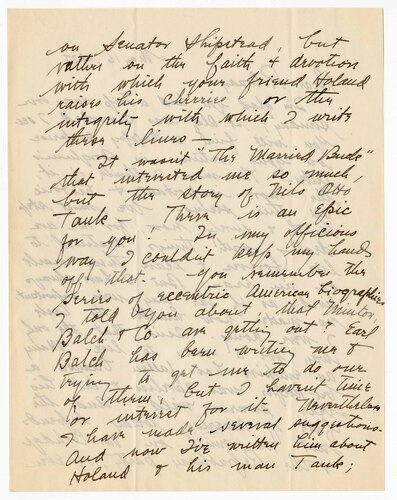 on Senator Shipstead, but
rather on the faith & devotion
with which your friend Holand
raises his cherries or the
integrity with which I write
these lines —
It wasn't "The Married Buds"
that interested me so much
but the story of Nils Otto
Tank — There is an epic
for you! In my officious
way I couldn't keep my hands
off that. — You remember the
series of eccentric American biographies
I told you about that Minton,
Balch & Co. are getting out? Earl
Balch has been writing me &
trying to get me to do one
of them, but I haven't time
or interest for it — Nevertheless
I have made several suggestions.
And now I've written him about
Holand & his man Tank;